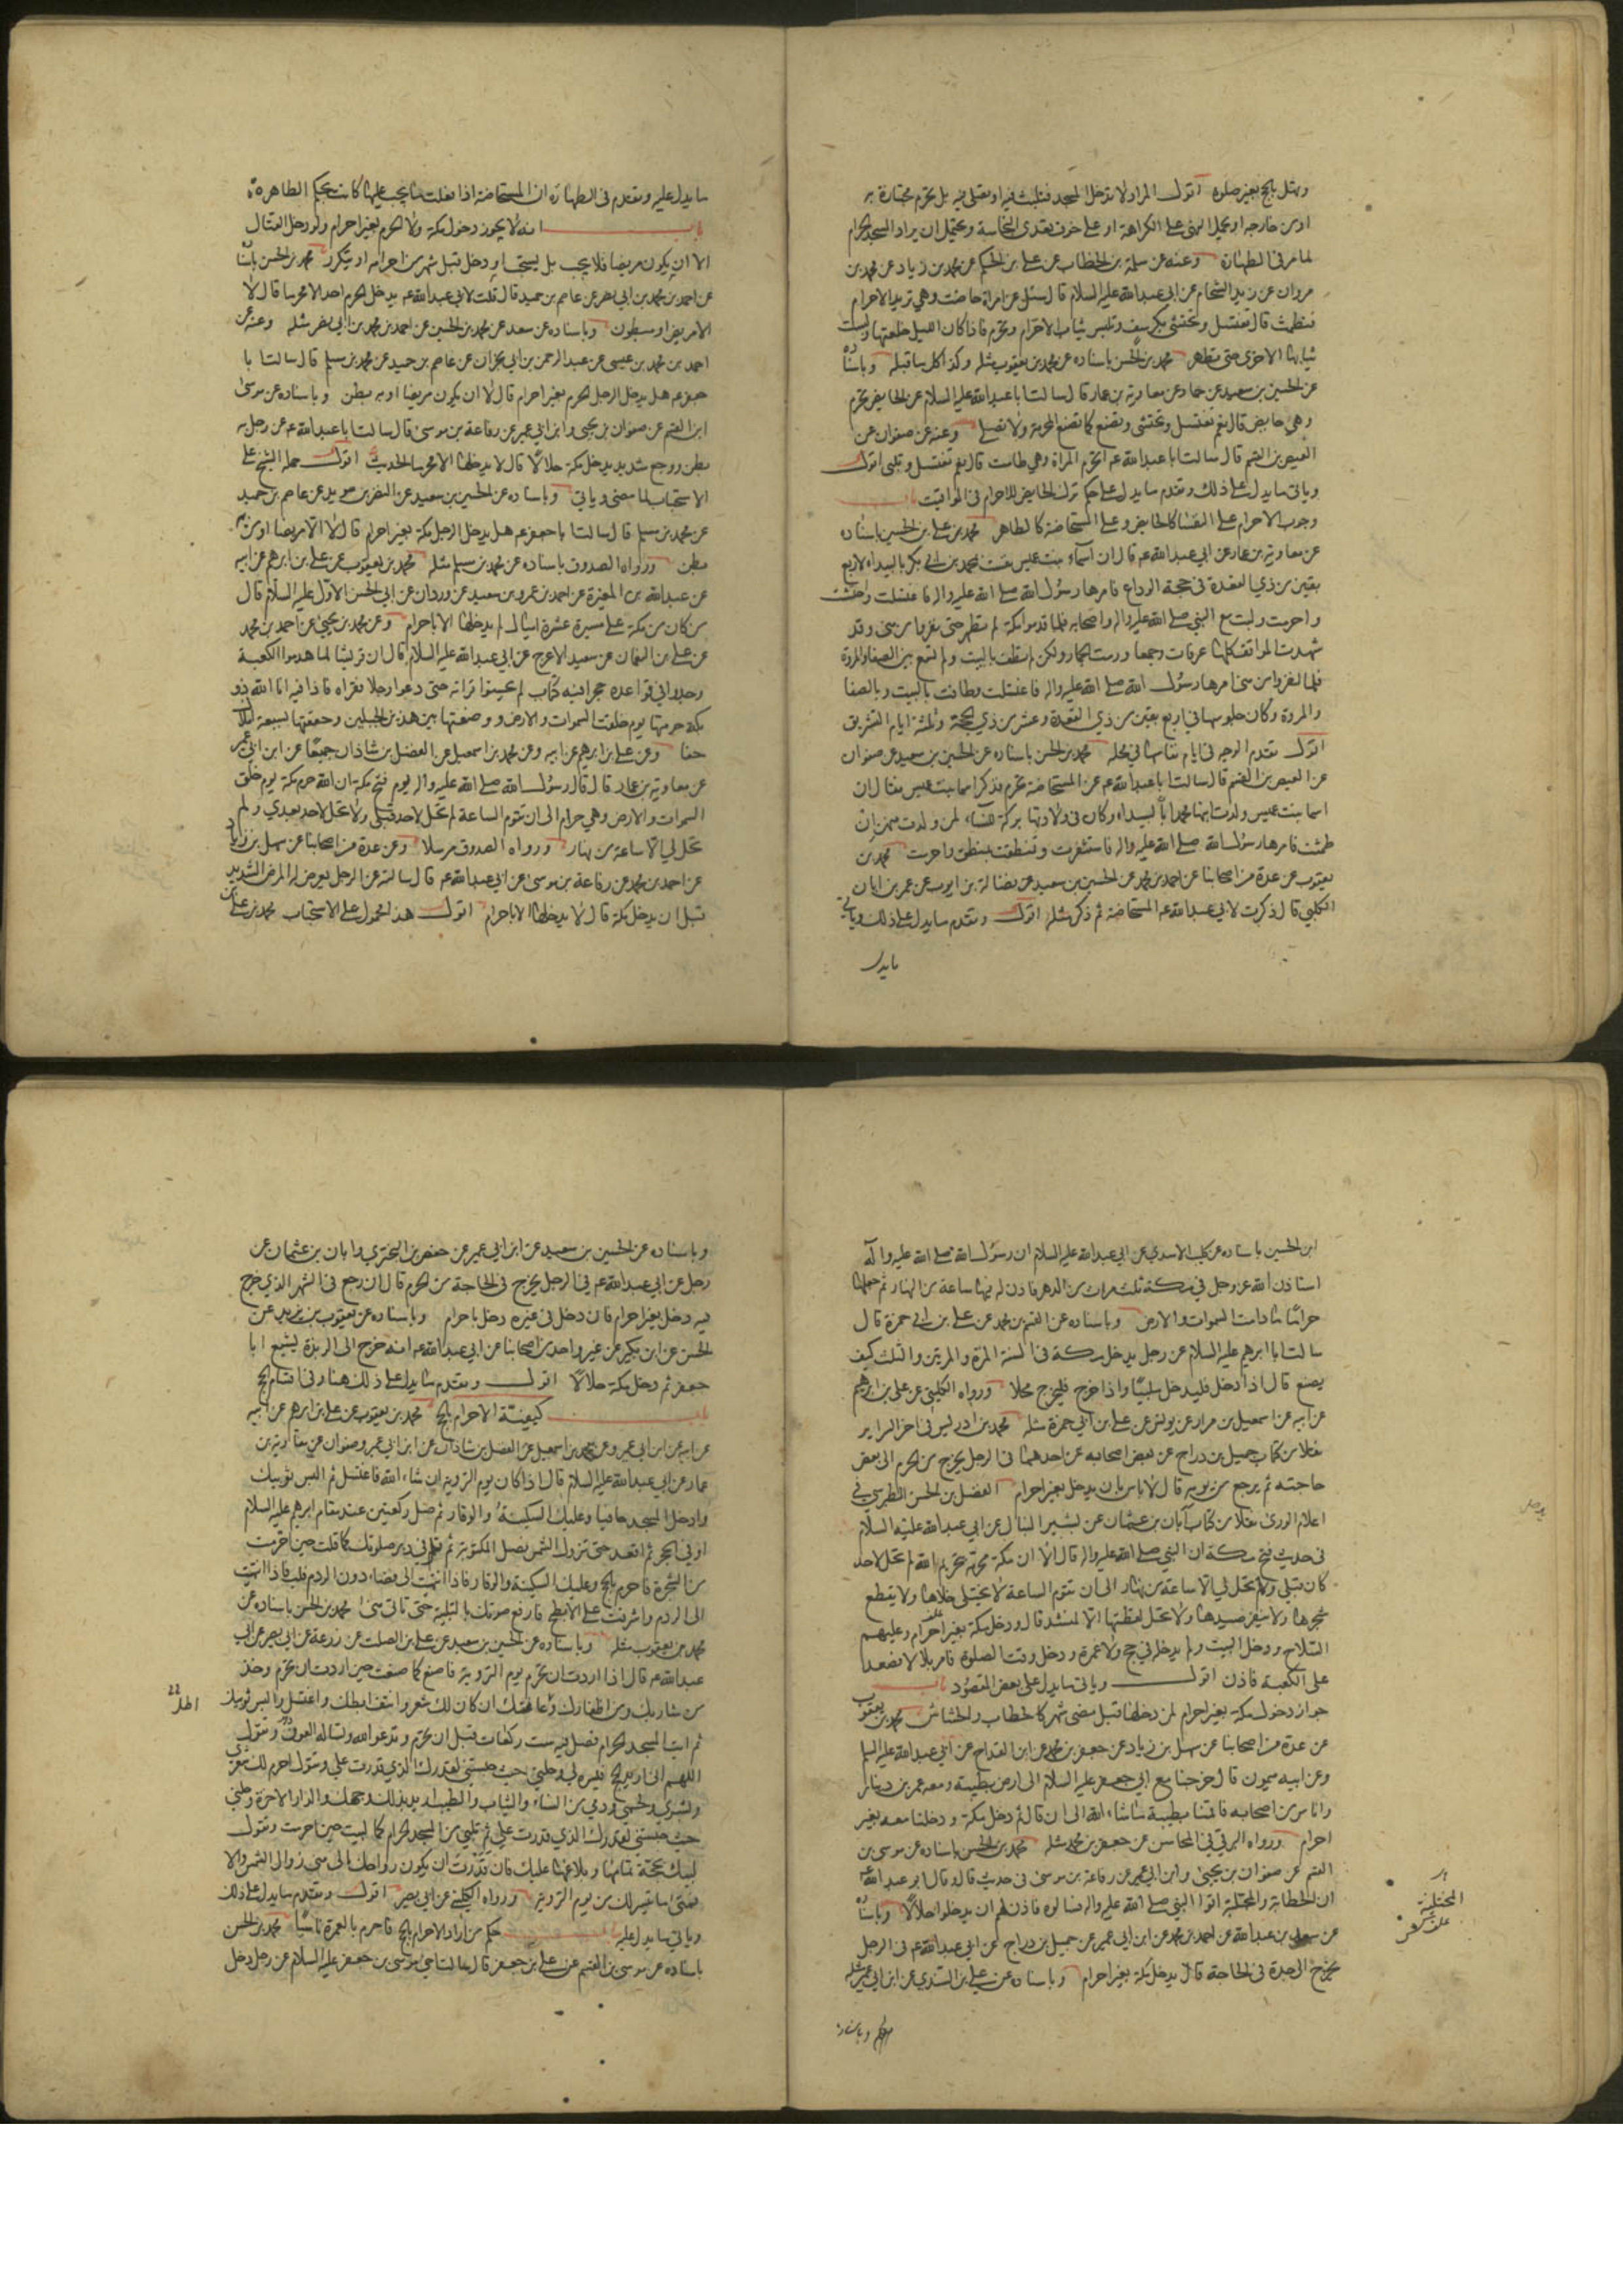 وتهل بالحج بغير صلوة اقول المراد لا تدخل المسجد فتلبث فيه او تصلى فيه بل تحرم مجتازة به
او من خارجه او يحمل النهى على الكراهة او على خوف تعدى النجاسة ويحتمل ان يراد المسجد الحرام
لما مر فى الطهارة وعنه عن سلمة بن الخطاب عن على بن الحكم عن محمد بن زياد عن محمد بن
مروان عن زيد الشحام عن ابى عبدالله عليه السلام قال سئل عن امراة حاضت وهى تريد الاحرام
فتطمث قال تغتسل وتحتشى بكرسف وتلبس ثياب الاحرام وتحرم فاذا كان الليل خلعتها ولبست
ثيابها الاخرى حتى تطهر محمد بن الحسن باسناده عن محمد بن يعقوب مثله وكذا كل ما قبله وباسناده
عن الحسين بن سعيد عن حماد عن معاوية بن عمار قال سالت ابا عبدالله عليه السلام عن الحايض تحرم
وهى حايض قال نعم تغتسل وتحتشى وتصنع كما تصنع المحرمة ولا تصلى وعنه عن صفوان عن
العيص بن القسم قال سالت ابا عبدالله عم اتحرم المراة وهى طامث قال نعم تغتسل وتلبى اقول
وياتى ما يدل على ذلك وتقدم ما يدل على حكم ترك الحايض للاحرام فى المواقيت باب
وجوب الاحرام على النفساء كالحايض وعلى المستحاضة كالطاهر محمد بن على بن الحسين باسناده
عن معاوية بن عمار عن ابى عبدالله عم قال ان اسماء بنت عميس نفست بمحمد بن ابى بكر بالبيداء لاربع
بقين من ذى القعدة فى حجة الوداع فامرها رسول الله صلى الله عليه واله فاغتسلت واحتشت
واحرمت ولبت مع النبى صلى الله عليه واله واصحابه فلما قدموا مكة لم تطهر حتى نفروا من منى وقد
شهدت المواقف كلها عرفات وجمعا ورمت الجمار ولكن لم تطف بالبيت ولم تسع بين الصفا والمروة
فلما نفروا من منى امرها رسول الله صلى الله عليه واله فاغتسلت وطافت بالبيت وبالصفا
والمروة وكان جلوسها فى اربع بقين من ذى القعدة وعشر من ذى الحجة وثلثة ايام التشريق
اقول تقدم الوجه فى ايام نفاسها فى محله محمد بن الحسن باسناده عن الحسين بن سعيد عن صفوان
عن العيص بن القسم قال سالت ابا عبدالله عم عن المستحاضة تحرم فذكر اسما بنت عميس فقال ان
اسما بنت عميس ولدت ابنها محمدا بالبيداء وكان فى ولادتها بركة للنساء لمن ولدت منهن او
طمثت فامرها رسول الله صلى الله عليه واله فاستثفرت وتنطقت بمنطق واحرمت محمد بن
يعقوب عن عدة من اصحابنا عن احمد بن محمد عن الحسين بن سعيد عن فضالة بن ايوب عن عمر بن ابان
الكلبى قال ذكرت لابى عبدالله عم المستحاضة ثم ذكر مثله اقول وتقدم ما يدل على ذلك وياتى
ما يدل
ما يدل عليه وتقدم فى الطهارة ان المستحاضة اذا فعلت ما يجب عليها كانت بحكم الطاهرة
باب انه لا يجوز دخول مكة ولا الحرم بغير احرام ولو دخل لقتال
الا ان يكون مريضا فلا يجب بل يستحب او دخل قبل شهر من احرامه او يتكرر محمد بن الحسن باسناده
عن احمد بن محمد بن ابى نصر عن عاصم بن حميد قال قلت لابى عبدالله عم يدخل الحرم احد الا محرما قال لا
الا مريض او مبطون وباسناده عن سعد عن محمد بن الحسين عن احمد بن محمد بن ابى نصر مثله وعنه عن
احمد بن محمد بن عيسى عن عبد الرحمن بن ابى نجران عن عاصم بن حميد عن محمد بن مسلم قال سالت ابا
جعفر عم هل يدخل الرجل الحرم بغير احرام قال لا الا ان يكون مريضا او به بطن وباسناده عن موسى
ابن القسم عن صفوان بن يحيى وابن ابى عمير عن رفاعة بن موسى قال سالت ابا عبدالله عم عن رجل به
بطن ووجع شديد يدخل مكة حلالا قال لا يدخلها الا محرما الحديث اقول حمله الشيخ على
الاستحباب لما مضى وياتى وباسناده عن الحسين بن سعيد عن النضر بن سويد عن عاصم بن حميد
عن محمد بن مسلم قال سالت ابا جعفر عم هل يدخل الرجل مكة بغير احرام قال لا الا مريضا او من به
بطن ورواه الصدوق باسناده عن محمد بن مسلم مثله محمد بن يعقوب عن على بن ابرهيم عن ابيه
عن عبدالله بن المغيرة عن احمد بن عمرو بن سعيد عن وردان عن ابى الحسن الاول عليه السلام قال
من كان من مكة على مسيرة عشرة اميال لم يدخلها الا باحرام وعن محمد بن يحيى عن احمد بن محمد
عن على بن النعمان عن سعيد الاعرج عن ابى عبدالله عليه السلام قال ان قريشا لما هدموا الكعبة
وجدوا فى قواعده حجرا فيه كتاب لم يحسنوا قراته حتى دعوا رجلا فقراه فاذا فيه انا الله ذو
بكة حرمتها يوم خلقت السموات والارض ووضعتها بين هذين الجبلين وحففتها بسبعة املاك
حفا وعن على بن ابرهيم عن ابيه وعن محمد بن اسمعيل عن الفضل بن شاذان جميعا عن ابن ابى عمير
عن معاوية بن عمار قال قال رسول الله صلى الله عليه واله يوم فتح مكة ان الله حرم مكة يوم خلق
السموات والارض وهى حرام الى ان تقوم الساعة لم تحل لاحد قبلى ولا تحل لاحد بعدى ولم
تحل لى الا ساعة من نهار ورواه الصدوق مرسلا وعن عدة من اصحابنا عن سهل بن زياد
عن احمد بن محمد عن رفاعة بن موسى عن ابى عبدالله عم قال سالته عن الرجل يعرض له المرض الشديد
قبل ان يدخل مكة قال لا يدخلها الا باحرام اقول هذا محمول على الاستحباب محمد بن على
ابن الحسين باسناده عن كليب الاسدى عن ابى عبدالله عليه السلام ان رسول الله صلى الله عليه وآله
استاذن الله عز وجل فى مكة ثلث مرات من الدهر فاذن له فيها ساعة من النهار ثم جعلها
حراما ما دامت السموات والارض وباسناده عن القسم بن محمد عن على بن ابى حمزة قال
سالت ابا ابرهيم عليه السلام عن رجل يدخل مكة فى السنة المرة والمرتين والثلث كيف
يصنع قال اذا دخل فليدخل ملبيا واذا خرج فليخرج محلا ورواه الكلينى عن على بن ابرهيم
عن ابيه عن اسمعيل بن مرار عن يونس عن على بن ابى حمزة مثله محمد بن ادريس فى اخر السراير
نقلا من كتاب جميل بن دراج عن بعض اصحابه عن احدهما فى الرجل يخرج من الحرم الى بعض
حاجته ثم يرجع من يومه قال لا باس بان يدخل بغير احرام الفضل بن الحسن الطبرسى فى
اعلام الورى نقلا من كتاب آبان بن عثمان عن بشير النبال عن ابى عبدالله عليه السلام
فى حديث فتح مكة ان النبى صلى الله عليه واله قال الا ان مكة محرمة بتحريم الله لم تحل لاحد
كان قبلى ولم تحل لى الا ساعة من نهار الى ان تقوم الساعة لا يختلى خلاها ولا يقطع
شجرها ولا ينفر صيدها ولا تحل لقطتها الا لمنشد قال ودخل مكة بغير احرام وعليهم
السلاح ودخل البيت ولم يدخله فى حج ولا عمرة ودخل وقت الصلوة فامر بلالا فصعد
على الكعبة فاذن اقول وياتى ما يدل على بعض المقصود باب
جواز دخول مكة بغير احرام لمن دخلها قبل مضى شهر كالحطاب والحشاش محمد بن يعقوب
عن عدة من اصحابنا عن سهل بن زياد عن جعفر بن محمد عن ابن القداح عن ابى عبدالله عليه السلم
وعن ابيه ميمون قال خرجنا مع ابى جعفر عليه السلام الى ارض بطيبة ومعه عمر بن دينار
واناس من اصحابه فاقمنا بطيبة ما شاء الله الى ان قال ثم دخل مكة ودخلنا معه بغير
احرام ورواه البرقى فى المحاسن عن جعفر بن محمد مثله محمد بن الحسن باسناده عن موسى بن
القسم عن صفوان بن يحيى وابن ابى عمير عن رفاعة بن موسى فى حديث قال وقال ابو عبدالله عم
ان الحطابة والمجتلبة اتوا النبى صلى الله عليه واله فسالوه فاذن لهم ان يدخلوا حلالا وباسناده
عن سعد بن عبدالله عن احمد بن محمد عن ابن ابى عمير عن جميل بن دراج عن ابى عبدالله عم فى الرجل
يخرج الى جدة فى الحاجة قال يدخل مكة بغير احرام وباسناده عن على بن السندى عن ابن ابى عمير مثله
وباسناده
المختلية
وباسناده عن الحسين بن سعيد عن ابن ابى عمير عن حفص بن البخترى وابان بن عثمان عن
رجل عن ابى عبدالله عم فى الرجل يخرج فى الحاجة من الحرم قال ان رجع فى الشهر الذى خرج
فيه دخل بغير احرام فان دخل فى غيره دخل باحرام وباسناده عن يعقوب بن يزيد عن
الحسن عن ابن بكير عن غير واحد من اصحابنا عن ابى عبدالله عم انه خرج الى الربذة يشيع ابا
جعفر ثم دخل مكة حلالا اقول وتقدم ما يدل على ذلك هنا وفى اقسام الحج
باب كيفية الاحرام بالحج محمد بن يعقوب عن على بن ابرهيم عن ابيه
عن ابن ابى عمير وعن محمد بن اسمعيل عن الفضل بن شاذان عن ابن ابى عمير وصفوان عن معاوية بن
عمار عن ابى عبدالله عليه السلام قال اذا كان يوم التروية ان شاء الله فاغتسل ثم البس ثوبيك
وادخل المسجد حافيا وعليك السكينة والوقار ثم صل ركعتين عند مقام ابرهيم عليه السلام
او فى الحجر ثم اقعد حتى تزول الشمس فصل المكتوبة ثم قل فى دبر صلوتك كما قلت حين احرمت
من الشجرة فاحرم بالحج وعليك السكينة والوقار فاذا انتهيت الى فضاء دون الردم فلب فاذا انتهيت
الى الردم واشرفت على الابطح فارفع صوتك بالتلبية حتى تاتى منى محمد بن الحسن باسناده عن
محمد بن يعقوب مثله وباسناده عن الحسين بن سعيد عن على بن الصلت عن زرعة عن ابى بصير عن ابى
عبدالله عم قال اذا اردت ان تحرم يوم التروية فاصنع كما صنعت حين اردت ان تحرم وخذ
من شاربك ومن اظفارك وعانتك ان كان لك شعر وانتف ابطك واغتسل والبس ثوبيك
ثم ائت المسجد الحرام فصل فيه ست ركعات قبل ان تحرم وتدعو الله وتساله العون وتقول
اللهم انى اريد الحج فيسره لى وحلنى حيث حبستنى لقدرك الذى قدرت على وتقول احرم لك شعرى
وبشرى ولحمى ودمى من النساء والثياب والطيب اريد بذلك وجهك والدار الاخرة وحلنى
حيث حبستنى لقدرك الذى قدرت على ثم تلبى من المسجد الحرام كما لبيت حين احرمت وتقول
لبيك بحجة تمامها وبلاغها عليك فان قدرت ان يكون رواحك الى منى زوال الشمس والا
فمتى ما تيسر لك من يوم التروية ورواه الكلينى عن ابى بصير اقول وتقدم ما يدل على ذلك
وياتى ما يدل عليه باب حكم من اراد الاحرام بالحج فاحرم بالعمرة ناسيا محمد بن الحسن
باسناده عن موسى بن القسم عن على بن جعفر قال سالت اخى موسى بن جعفر عليه السلام عن رجل دخل